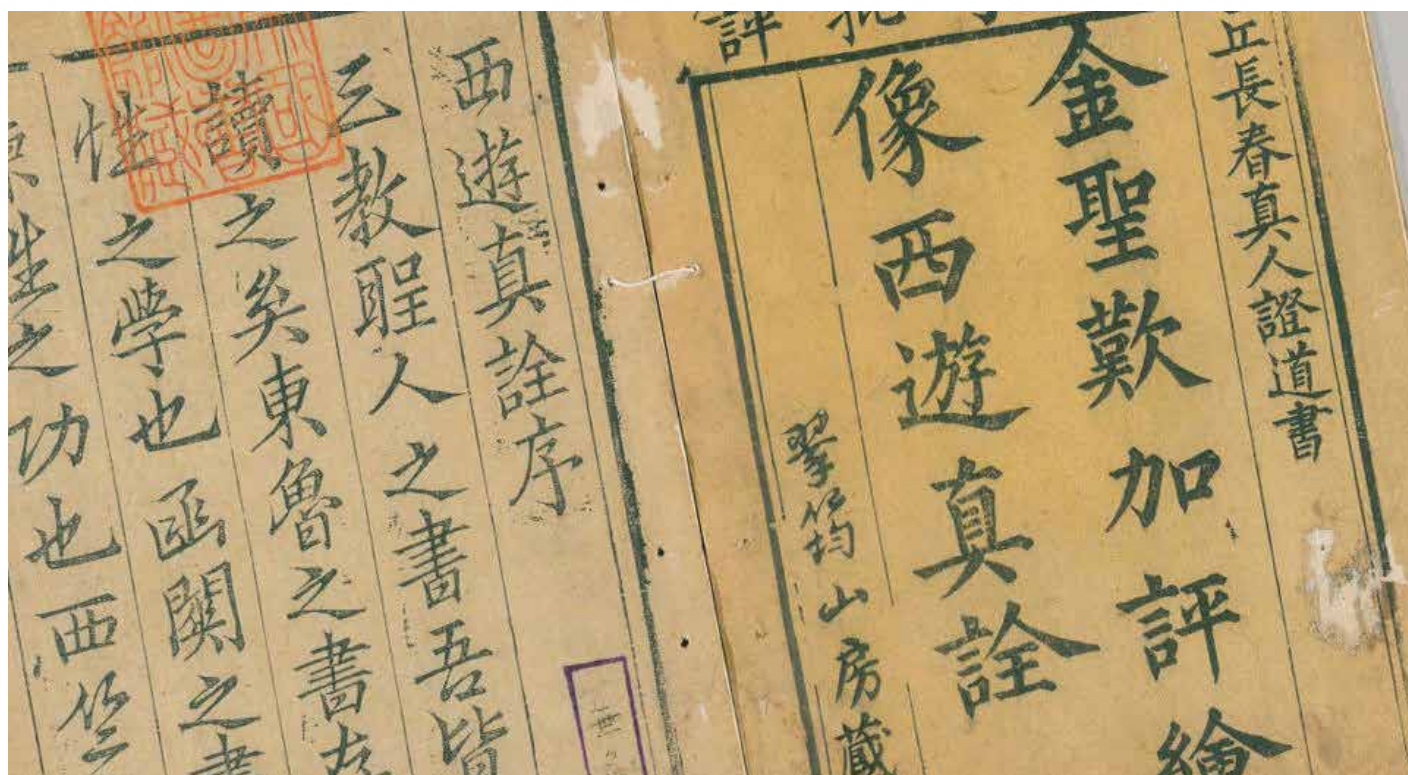 批評
丘長春真人證道書
金聖歎加評繪
像西遊真詮
翠筠山房藏
西遊真詮序
三教聖人之書吾皆
讀之矣東魯之書存
性之學也函關之書
性之功也西竺